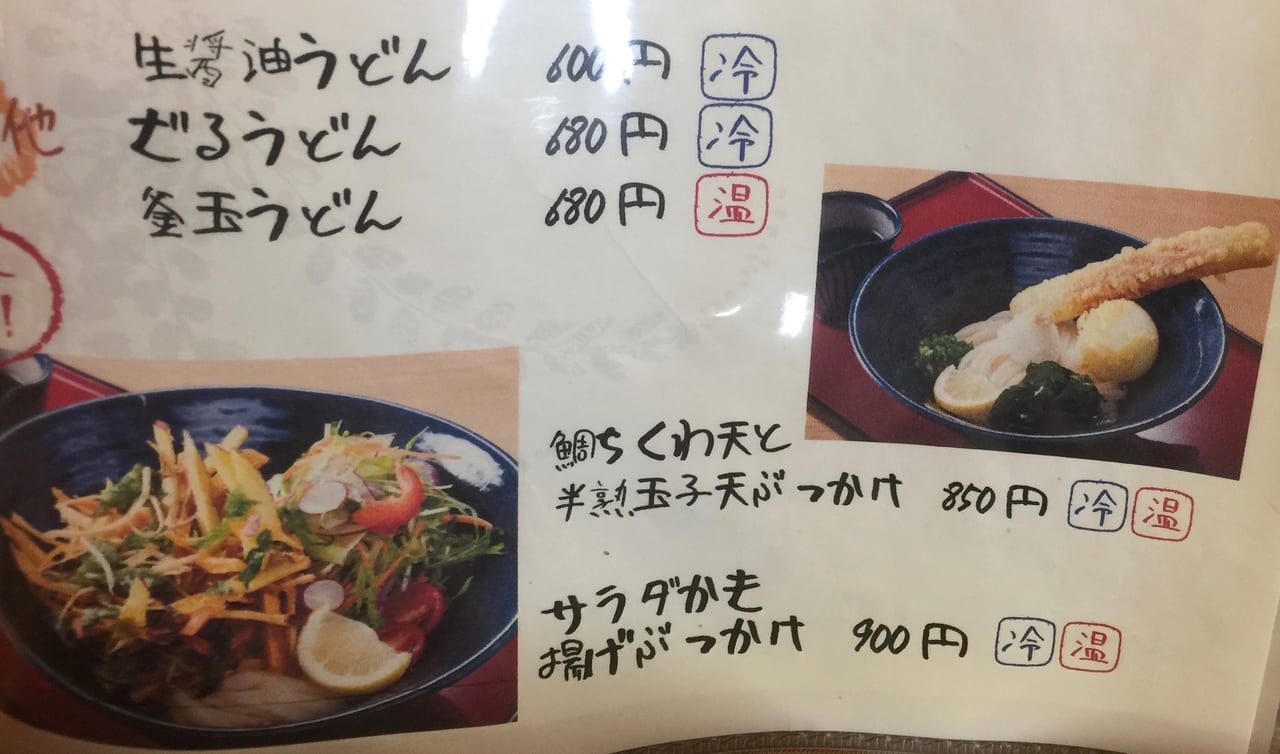 生醤油うどん 600円 冷
他
ざるうどん 680円 冷
釜玉うどん 680円 温
!
鯛ちくわ天と
半熟玉子天ぶっかけ 850円 冷 温
サラダかき
揚げぶっかけ 900円 冷 温